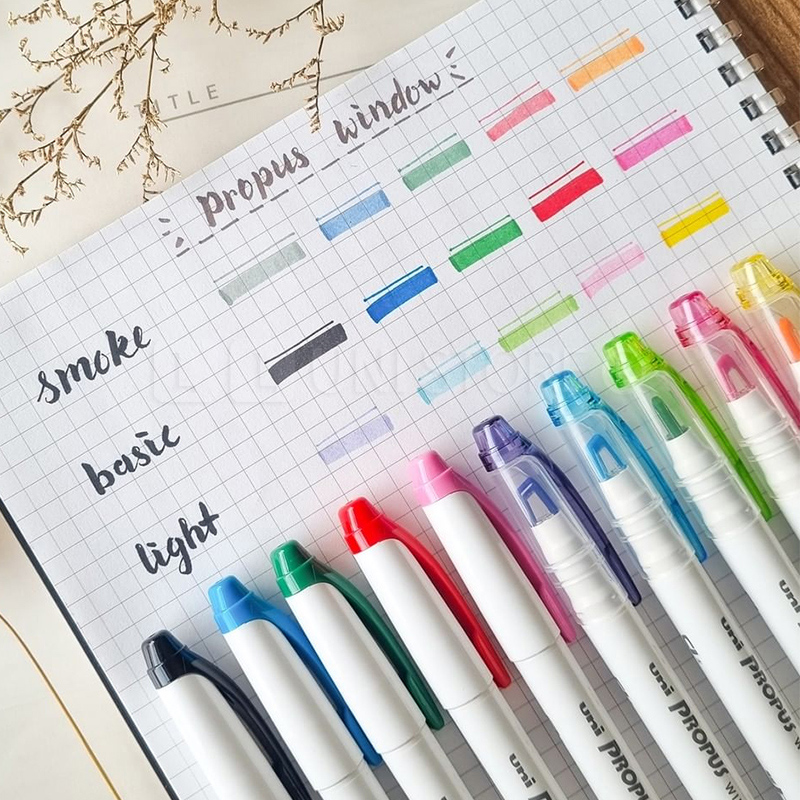 TITLE
propus window
smoke
basic
light
uni
uni PROPUS
uni PROPUS
uni PROPUS
uni